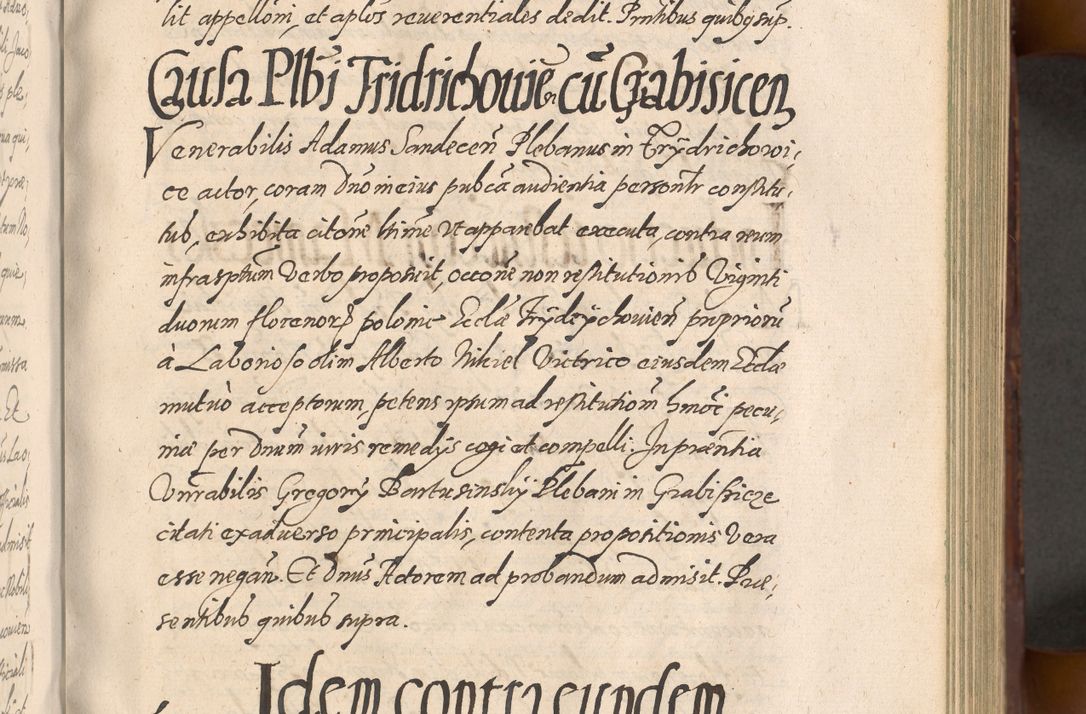 lit appelloni, et aplos reverentiales dedit. Pntibus quibus sup.
Causa Plbi Fridrichovien cū Grabisicen
Venerabilis Adamus Sandeceñ Plebanus in Frÿdrichowi,
ce actor, coram Dno in eius pubca audientia personlr constitu,
tus, exhibita citone ltime ut apparebat executa, contra reum
infrasptum Verbo proposuit, occone non restitutionis Viginti
duorum florenor polonie Ecclae Frÿdrÿchovieñ propriorū
à Laborioso olim Alberto Nikiel Victrico eiusdem Ecclae
mutuò acceptorum, petens ipsum ad restitutiom hmoi pecu,
niae per Dnum iuris remedys cogi et compelli. In praentia
Vnrabilis Gregorÿ Bartusinskÿ Plebani in Grabissicze
citati ex adverso principalis, contenta propositionis Vera
esse negan. Et Dnus Actorem ad probandum admisit. Prae,
sentibus quibus supra.
Idem contra eundem